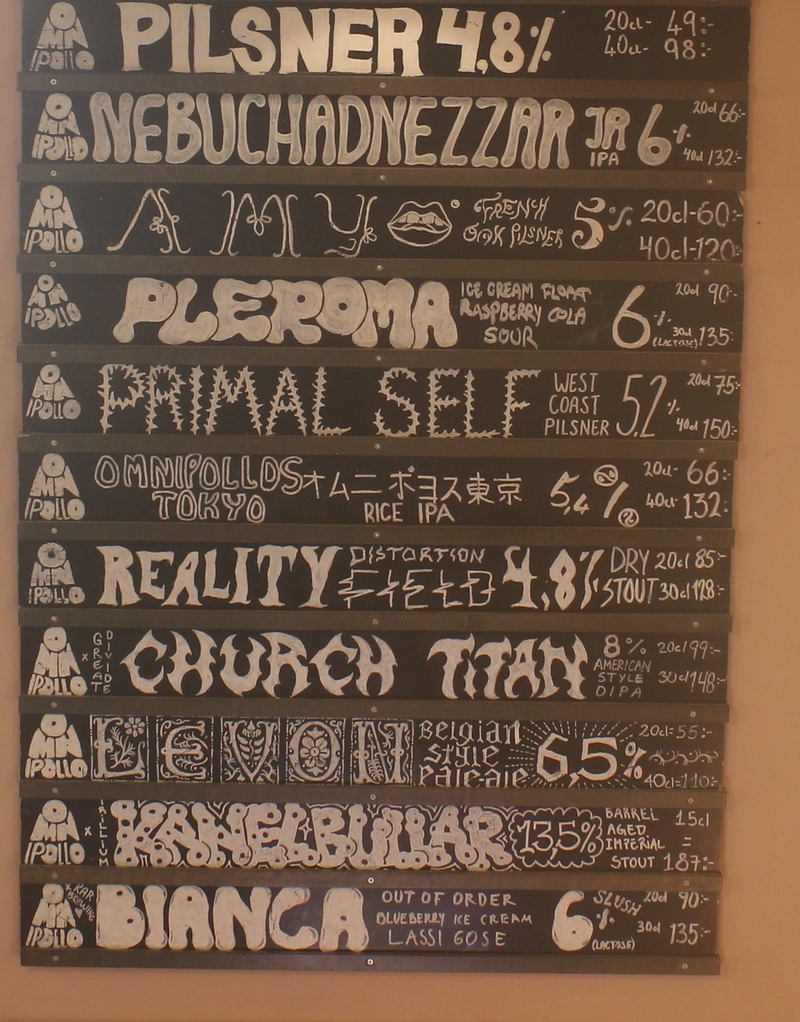 OMNIPOLLO PILSNER 4,8% 20cl- 49:-
40cl- 98:-
OMNIPOLLO NEBUCHADNEZZAR JR IPA 6% 20cl 66:-
40cl 132:-
OMNIPOLLO AMY FRENCH OAK PILSNER 5% 20cl-60:-
40cl-120:-
OMNIPOLLO PLEROMA ICE CREAM FLOAT
RASPBERRY COLA
SOUR 6% (LACTOSE) 20cl 90:-
30cl 135:-
OMNIPOLLO PRIMAL SELF WEST
COAST
PILSNER 5,2% 20cl 75:-
40cl 150:-
OMNIPOLLO OMNIPOLLOS
TOKYO オムニポヨス東京
RICE IPA 5,4% 20cl- 66:-
40cl- 132:-
OMNIPOLLO REALITY DISTORTION
FIELD 4,8% DRY
STOUT 20cl 85:-
30cl 128:-
OMNIPOLLO x GREAT DIVIDE CHURCH TITAN 8%
AMERICAN
STYLE
DIPA 20cl 99:-
30cl 148:-
OMNIPOLLO LEVON Belgian
style
Pale ale 6,5% 20cl=55:-
40cl=110:-
OMNIPOLLO x TRILLIUM KANELBULLAR 13,5% BARREL
AGED
IMPERIAL
STOUT 15cl
=
187:-
OMNIPOLLO x KAR BREWING BIANCA OUT OF ORDER
BLUEBERRY ICE CREAM
LASSI GOSE 6% (LACTOSE) SLUSH 20cl 90:-
30cl 135:-